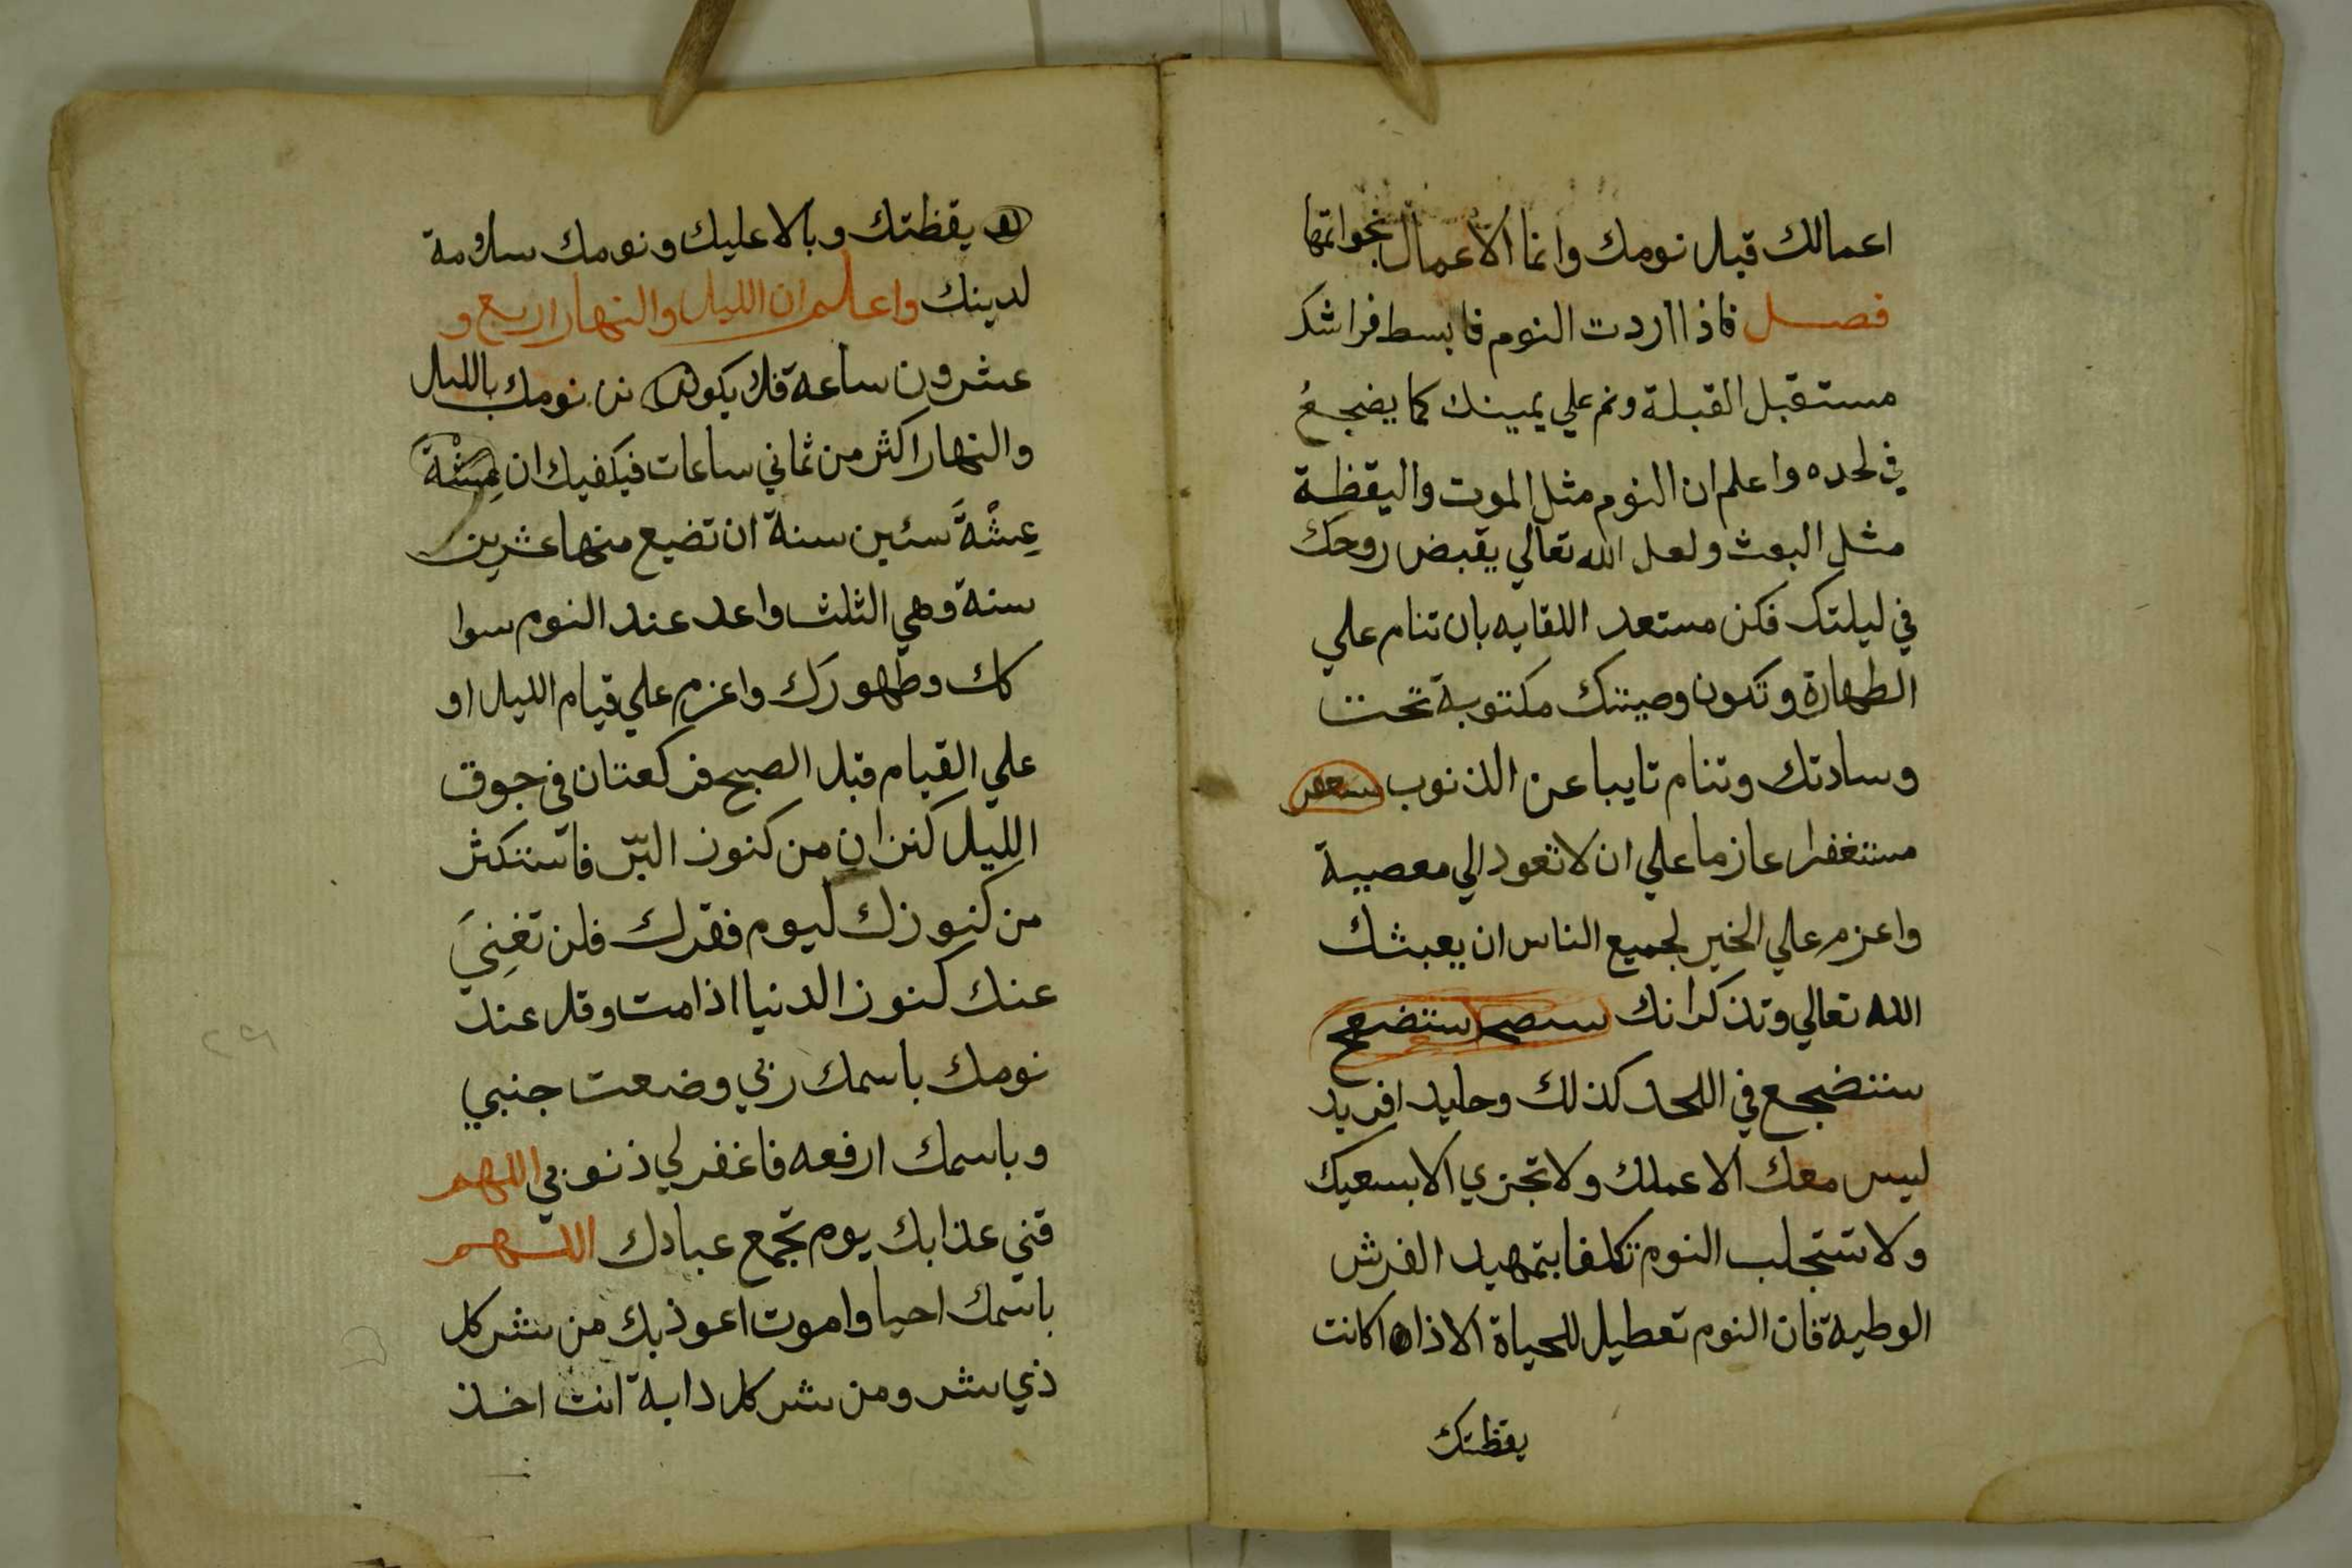 اعمالك قبل نومك وانما الاعمال بخواتمها
فصل فاذا اردت النوم فابسط فراشك
مستقبل القبلة ونم علي يمينك كما يضجعُ
في لحده واعلم ان النوم مثل الموت واليقظة
مثل البعث ولعل الله تعالي يقبض روحك
في ليلتك فكن مستعد اللقايه بان تنام علي
الطهارة وتكون وصيتك مكتوبة تحت
وسادتك وتنام تايبا عن الذنوب
مستغفرا عازما علي ان لا تعود الي معصية
واعزم علي الخير لجميع الناس ان يعبثك
الله تعالي وتذكر انك ستضجع
ستضجع في اللحد كذلك وحايد افريد
ليس معك الا عملك ولا تجزي الا بسعيك
ولا تستجلب النوم تكلفا بتمهيد الفرش
الوطية فان النوم تعطيل للحياة الا اذا كانت
يقظتك
يقظتك وبالا عليك ونومك سلامة
لدينك واعلم ان الليل والنهار اربع و
عشرون ساعة فلا يكون نومك بالليل
والنهار اكثر من ثماني ساعات فيكفيك ان
عِشْةً ستين سنة ان تضيع منها عشرين
سنة وهي الثلث واعد عند النوم سوا
كك وطهورك واعزم علي قيام الليل او
علي القيام قبل الصبح فركعتان في جوف
الليل كنزان من كنوز البّر فاستكثر
من كنوزك ليوم فقرك فلن تغنِيَ
عنك كنوز الدنيا اذا مت وقل عند
نومك باسمك ربي وضعت جنبي
وباسمك ارفعه فاغفر لي ذنوبي اللهم
قني عذابك يوم تجمع عبادك اللهم
باسمك احيا واموت اعوذ بك من شر كل
ذي شر ومن شر كل دابة انت اخذ